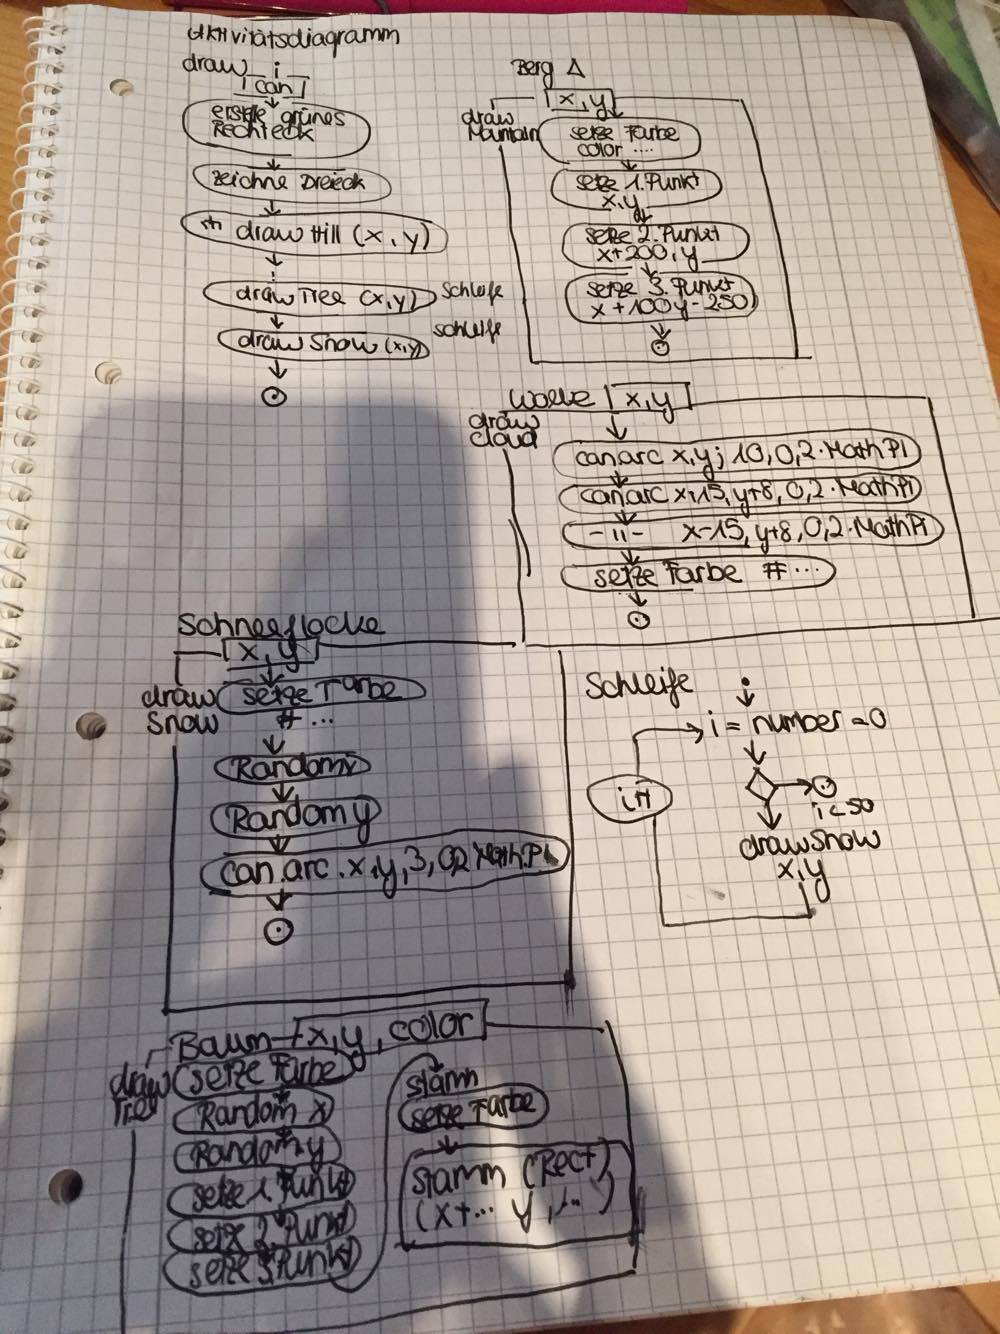 Aktivitätsdiagramm
draw
can
erstelle grünes
Rechteck
zeichne Dreieck
drawHill (x, y)
drawTree (x,y) Schleife
drawSnow (x,y) schleife
Berg Δ
x, y
draw
Mountain
setze Farbe
color ....
setze 1. Punkt
x, y
setze 2. Punkt
x+200, y
setze 3. Punkt
x+100 y-250
Wolke x, y
draw
cloud
can.arc x, y; 10, 0, 2·MathPI
can.arc x+15, y+8, 0, 2·MathPI
-"- x-15, y+8, 0, 2·MathPI
setze Farbe #...
Schneeflocke
x, y
draw
Snow
setze Farbe
# ...
Random x
Random y
can.arc.x,y,3,0,2 Math.PI
Schleife
i = number = 0
i++
i < 50
drawSnow
x, y
Baum x, y, color
draw
Tree
setze Farbe
Random x
Random y
setze 1. Punkt
setze 2. Punkt
setze 3. Punkt
stamm
setze Farbe
stamm (Rect)
(x+... y, ...)